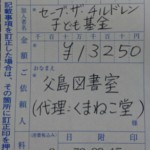 セーブ・ザ・チルドレン
子ども基金
金額
¥13250
ご依頼人
おなまえ
父島図書室
(代理:くまねこ堂)
日附印
記載事項を訂正した場合は、その箇所に訂正印を押